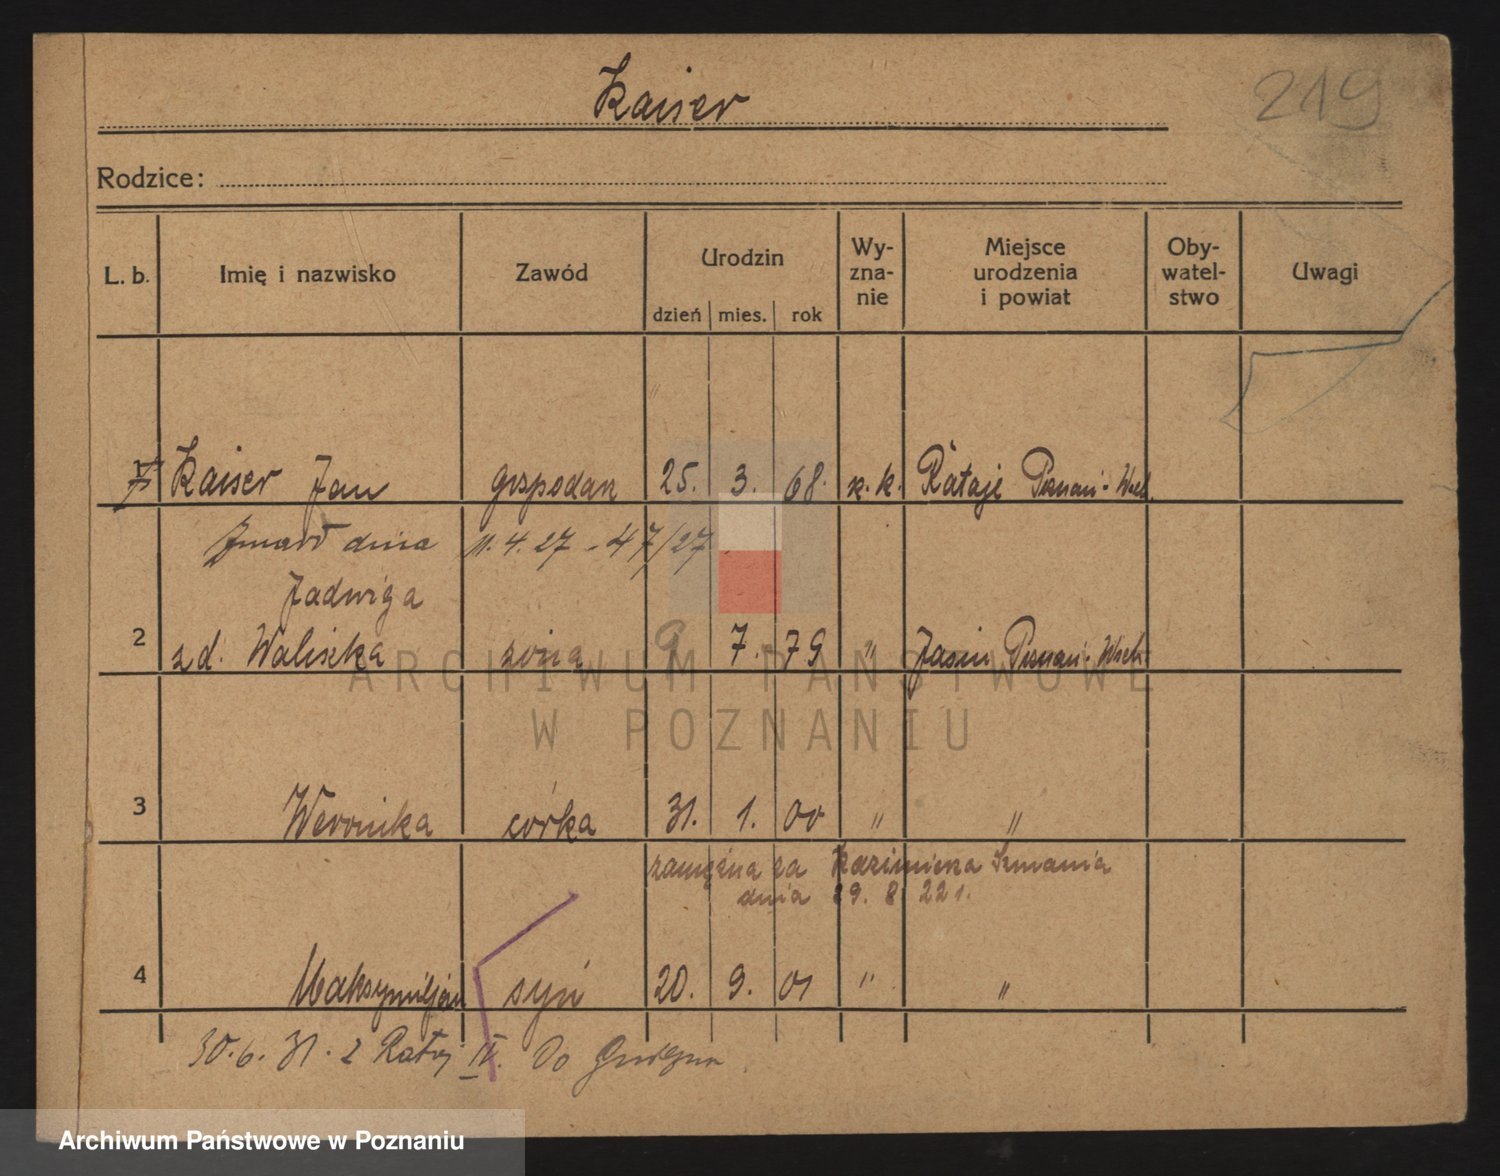 Kaiser
219
Rodzice:
L. b. Imię i nazwisko Zawód Urodzin dzień mies. rok Wy-zna-nie Miejsce urodzenia i powiat Oby-watel-stwo Uwagi
1 Kaiser Jan gospodarz 25. 3. 68. r.k. Rataje Poznań-Wsch.
Zmarł dnia 11.4.27 - 47/27
Jadwiga
2 z d. Waliszka żona 9 7. 79 " Jasin Poznań-Wsch.
3 Weronika córka 31. 1. 00 " "
zamężna za Kazimierza Szmania
dnia 29. 8 22 r.
4 Maksymiljan syn 20. 9. 01 " "
30.6.31. z Rataj II. Do
ARCHIWUM PAŃSTWOWE
W POZNANIU
Archiwum Państwowe w Poznaniu